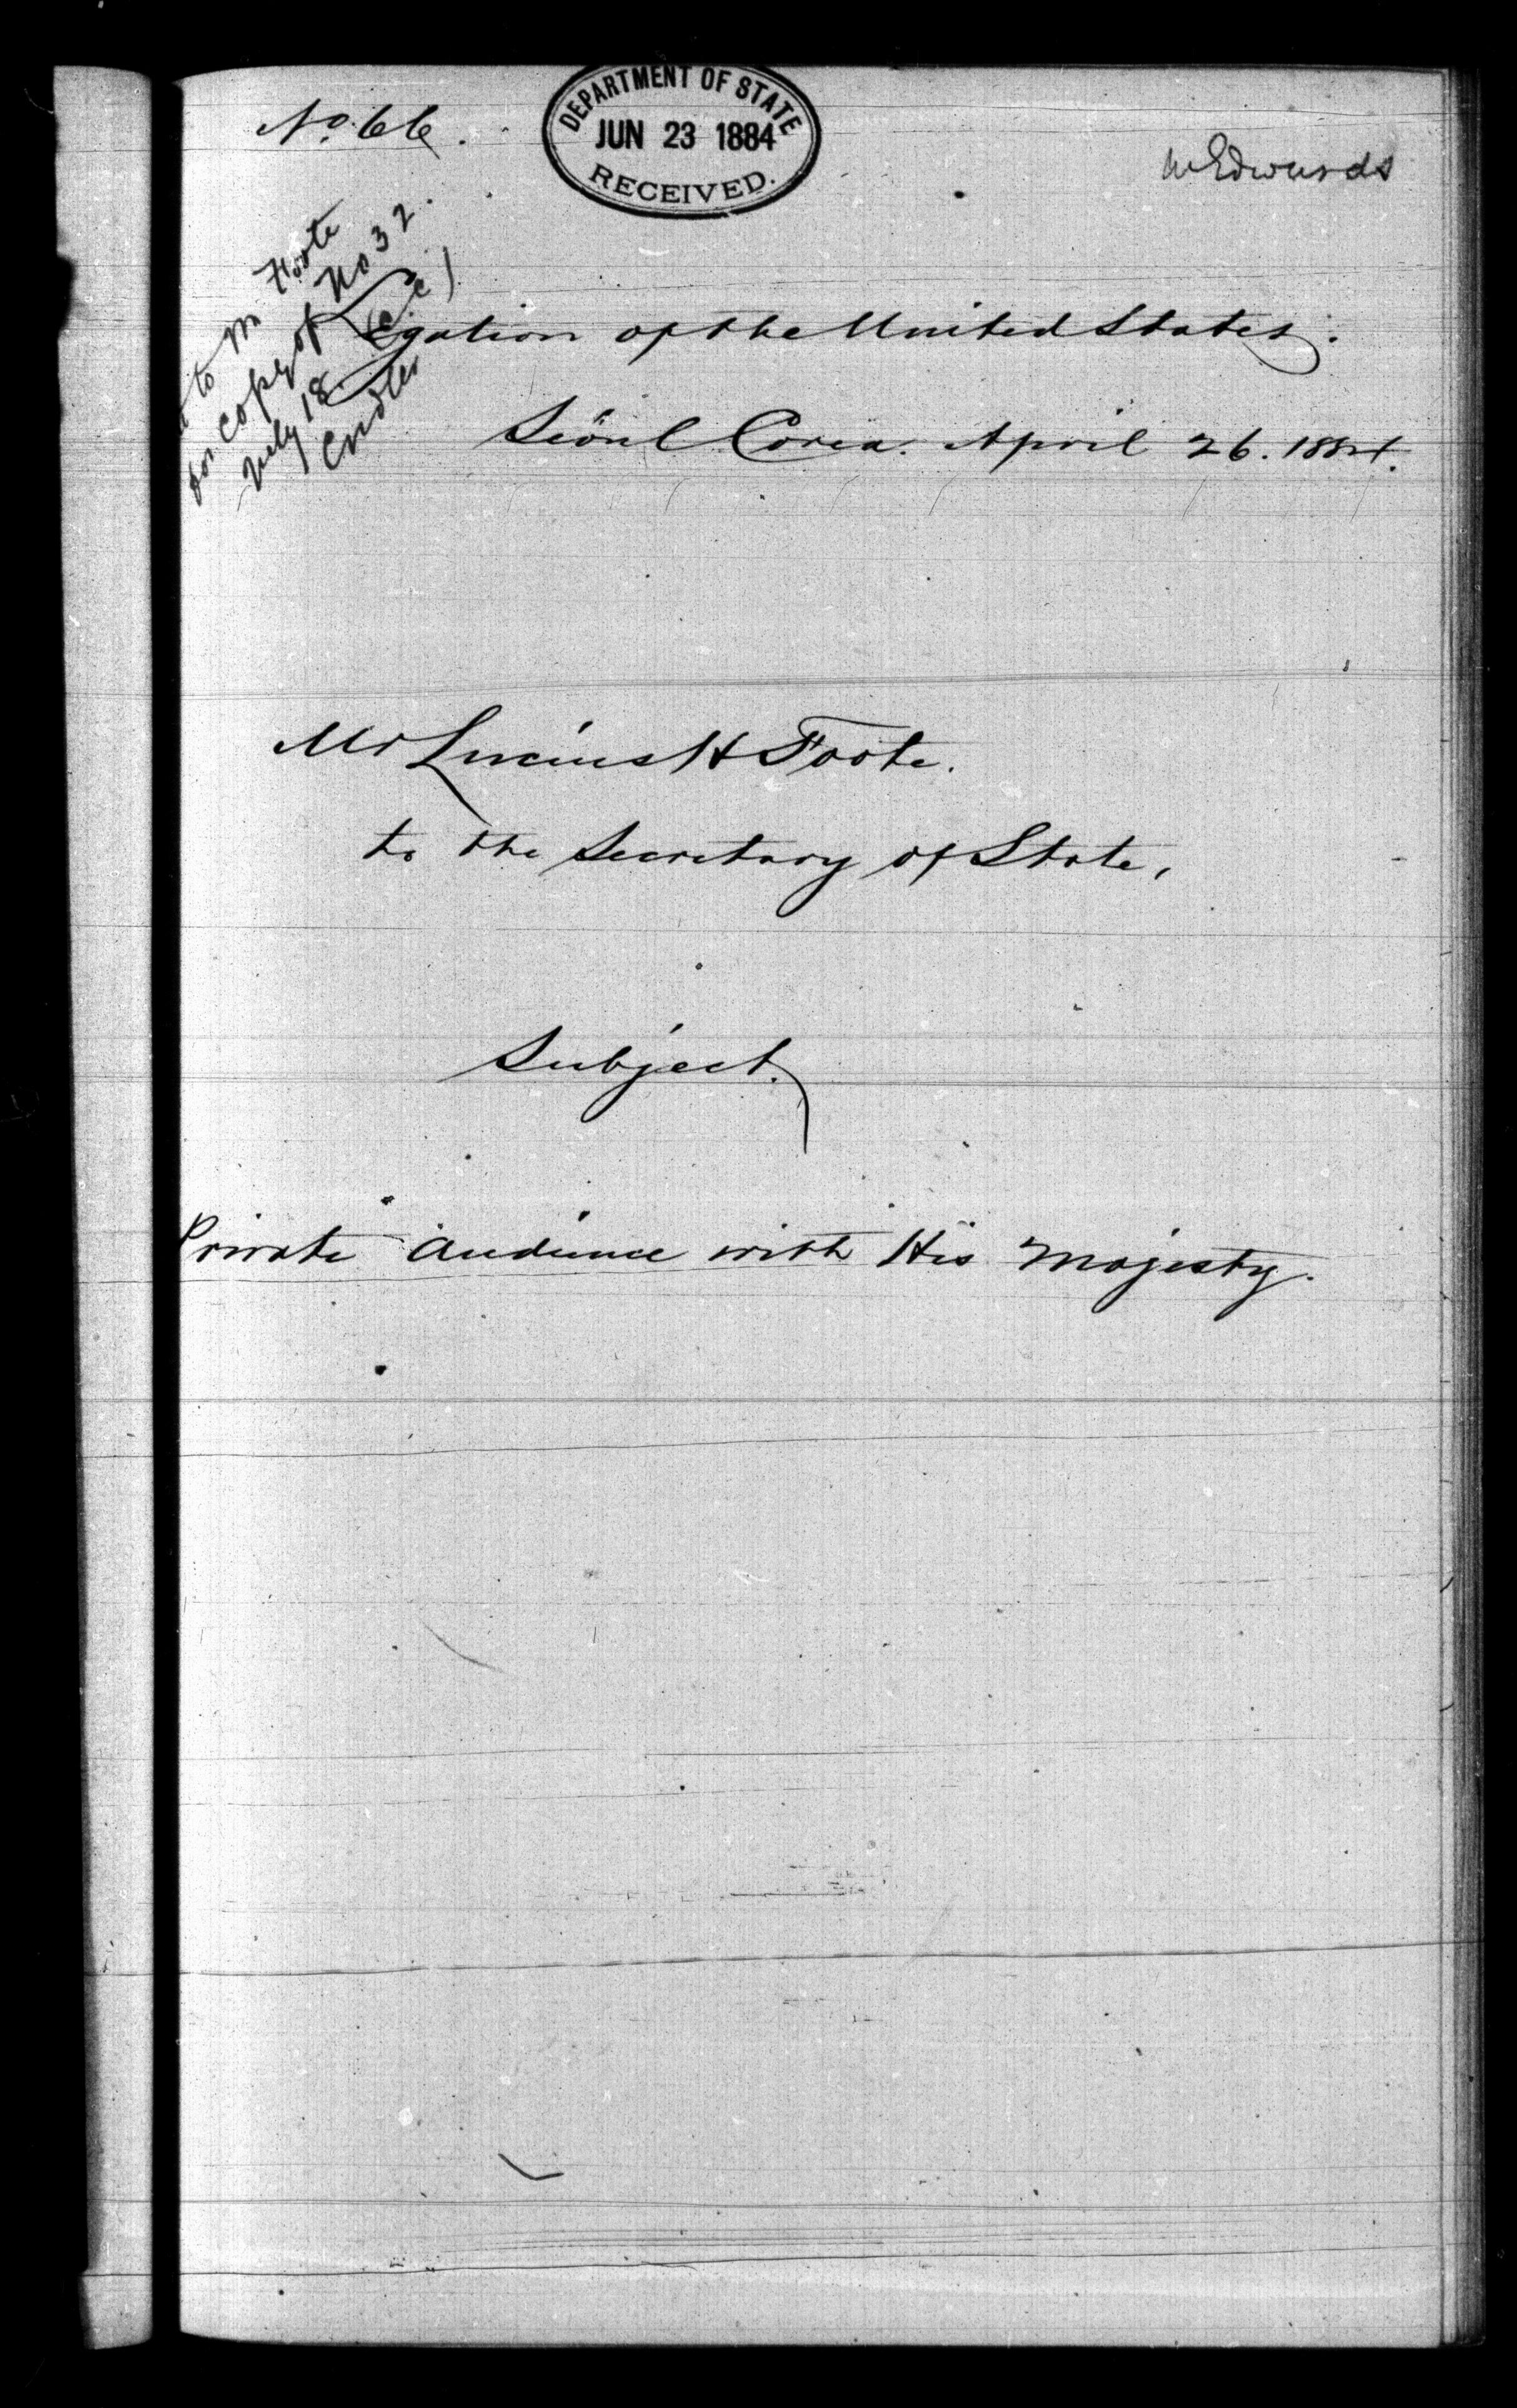 No 66.
DEPARTMENT OF STATE
JUN 23 1884
RECEIVED.
W Edwards
to Mr Foote
for copy of No 32.
July 18 (c.c)
Legation of the United States.
Seöul Corea. April 26. 1884.
Mr Lucius H Foote.
to the Secretary of State,
Subject.
Private Audience with His Majesty.